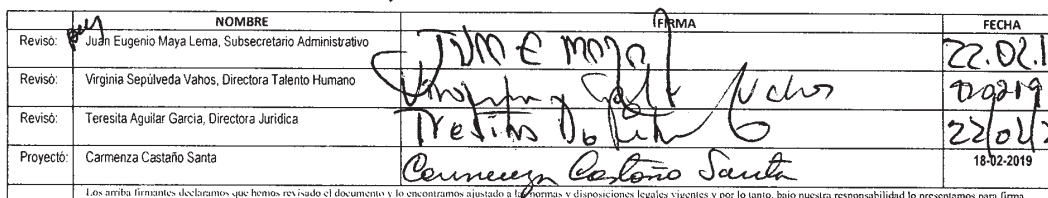 NOMBRE FIRMA FECHA
Revisó: Juan Eugenio Maya Lema, Subsecretario Administrativo 22.02.1
Revisó: Virginia Sepúlveda Vahos, Directora Talento Humano
Revisó: Teresita Aguilar García, Directora Jurídica 22/02/
Proyectó: Carmenza Castaño Santa Carmenza Castaño Santa 18-02-2019
Los arriba firmantes declaramos que hemos revisado el documento y lo encontramos ajustado a las normas y disposiciones legales vigentes y por lo tanto, bajo nuestra responsabilidad lo presentamos para firma